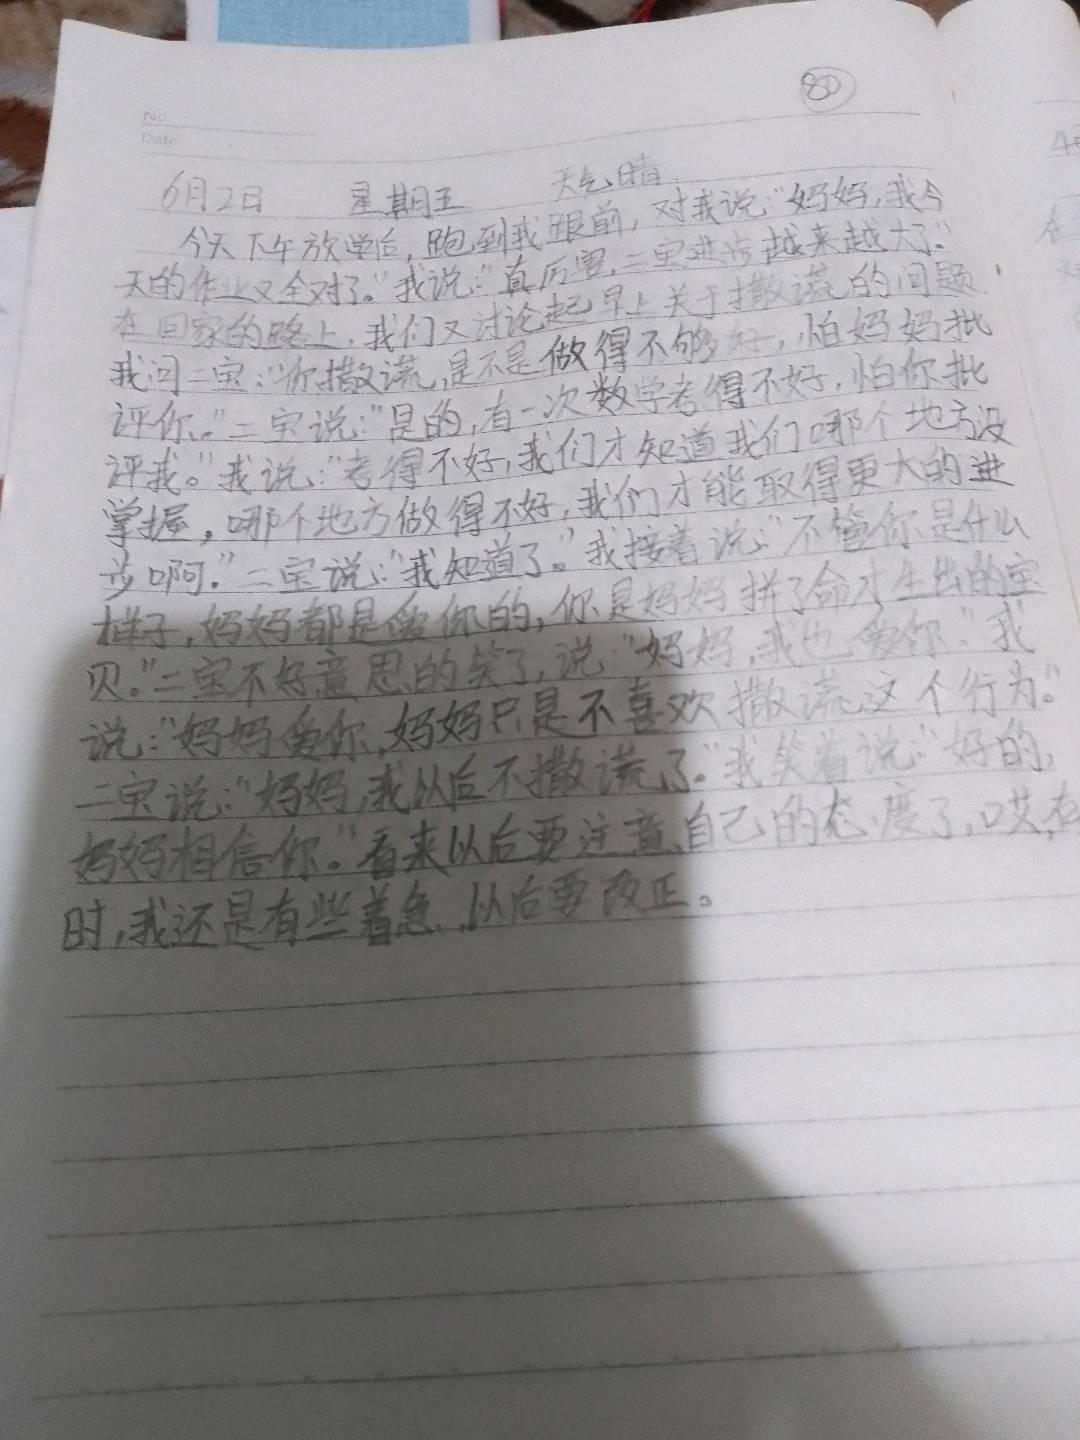 80
No.
Date
6月2日 星期五 天气晴
今天下午放学后，跑到我跟前，对我说："妈妈，我今
天的作业又全对了。"我说："真厉害，二宝进步越来越大了。"
在回家的路上，我们又讨论起早上关于撒谎的问题
我问二宝："你撒谎，是不是做得不够好，怕妈妈批
评你。"二宝说："是的，有一次数学考得不好，怕你批
评我。"我说："考得不好，我们才知道我们哪个地方没
掌握，哪个地方做得不好，我们才能取得更大的进
步啊。"二宝说："我知道了。"我接着说："不管你是什么
样子，妈妈都是爱你的，你是妈妈拼了命才生出的宝
贝。"二宝不好意思的笑了，说："妈妈，我也爱你。"我
说："妈妈爱你，妈妈只是不喜欢撒谎这个行为。"
二宝说："妈妈，我以后不撒谎了。"我笑着说："好的，
妈妈相信你。"看来以后要注意自己的态度了，哎，有
时，我还是有些着急，以后要改正。